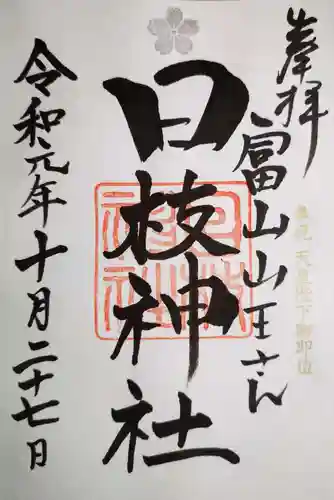 奉拝
富山山王さん
日枝神社
令和元年十月二十七日
日枝神社